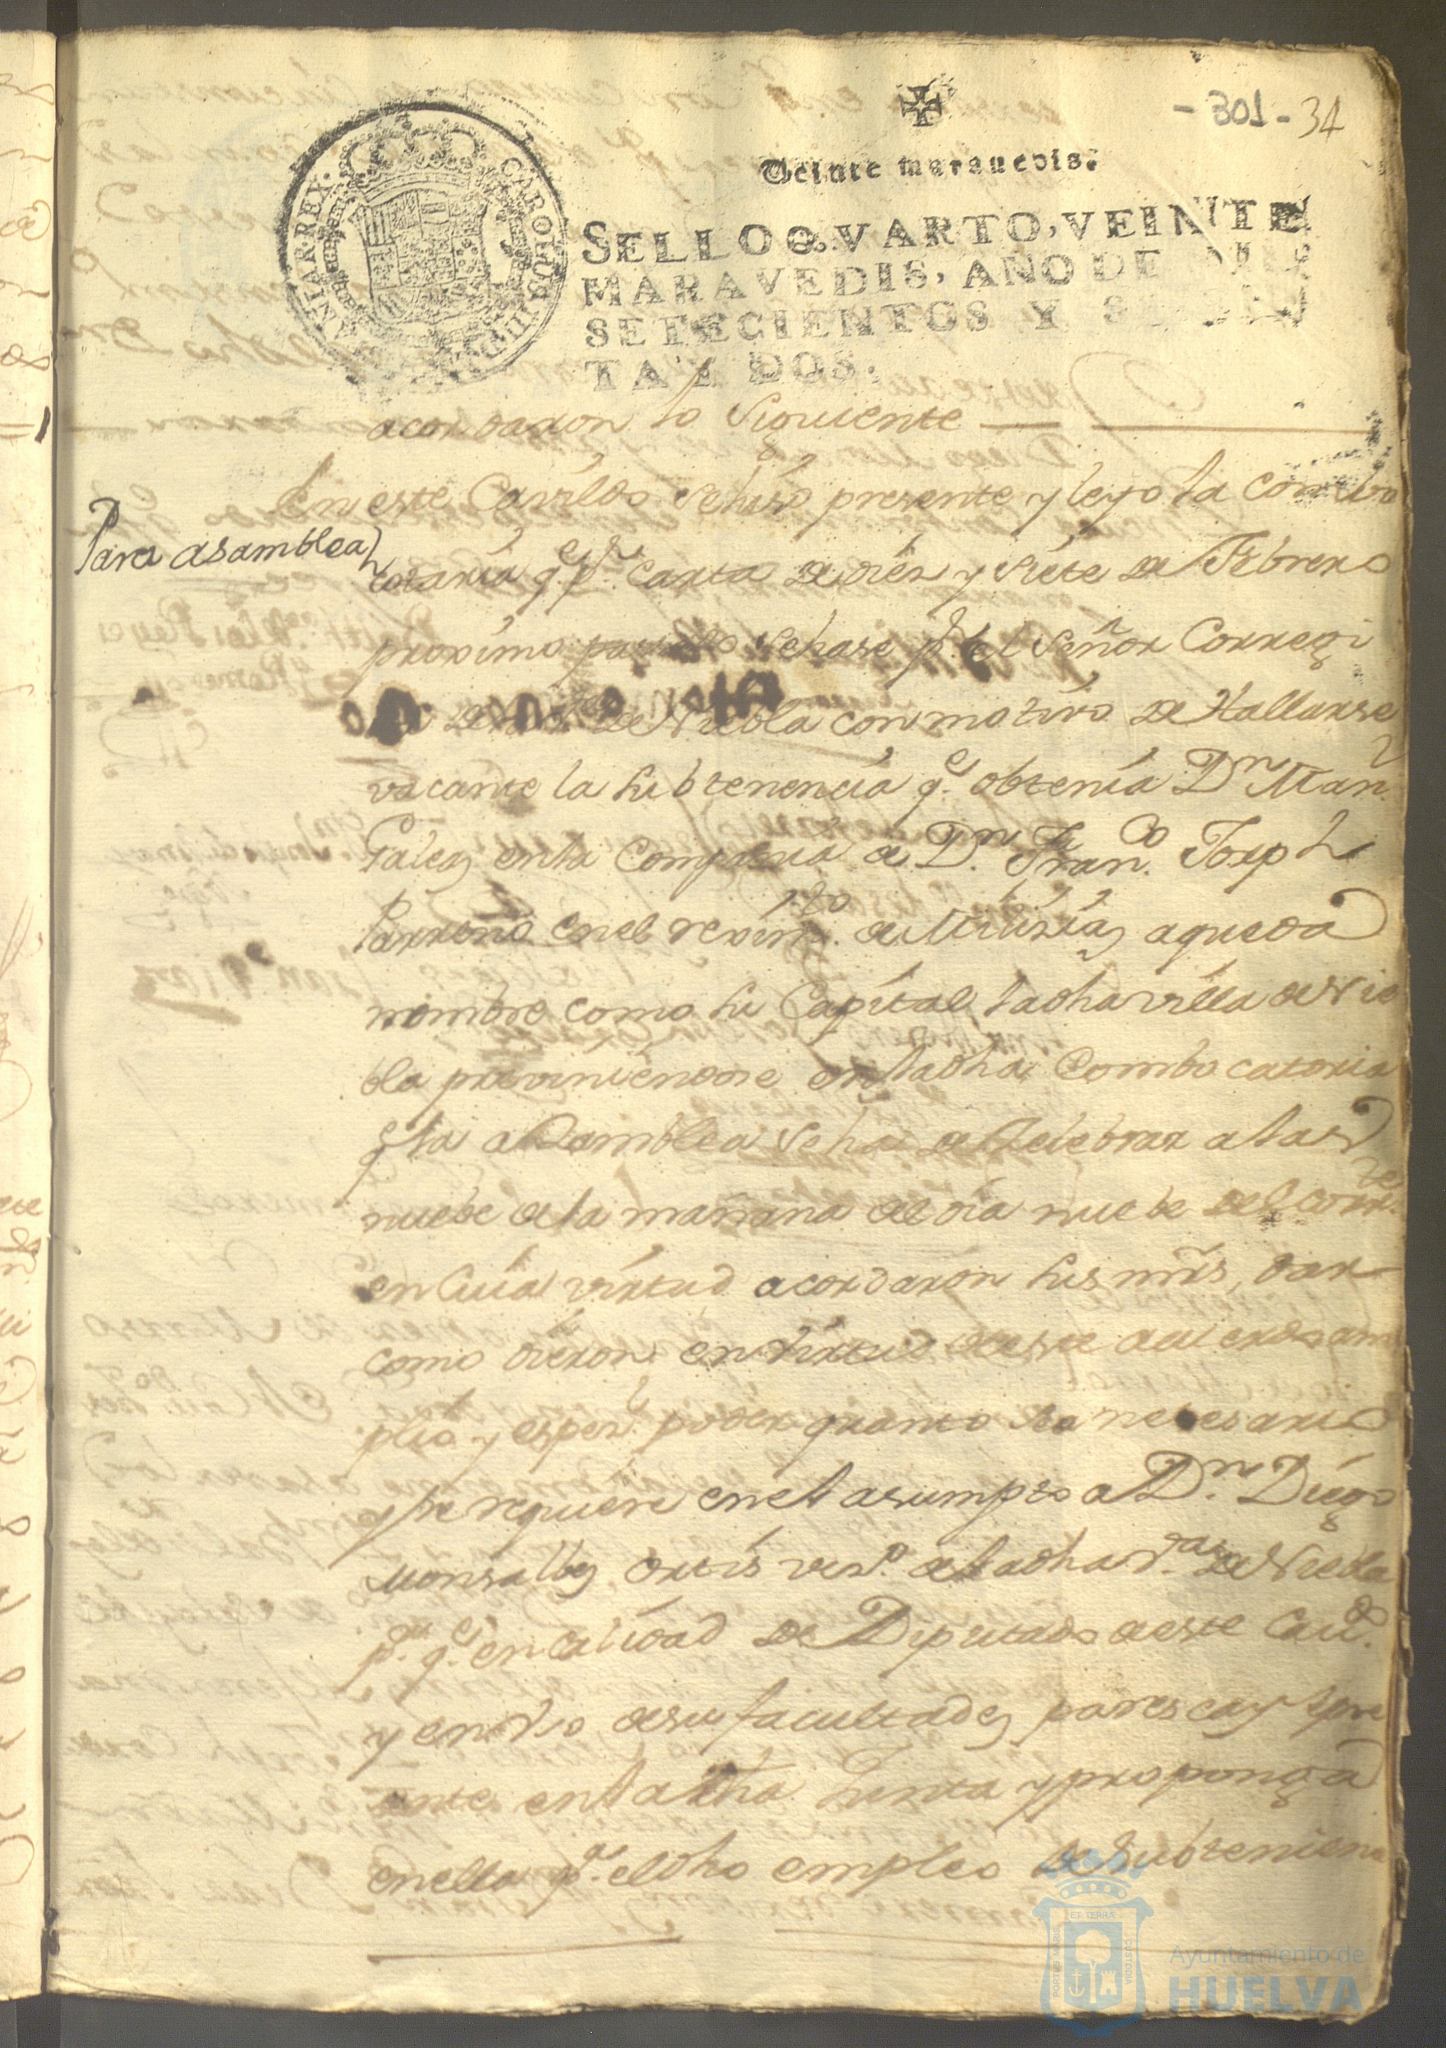 - 301 - 34
Veinte maravedis.
SELLO QVARTO, VEINTE
MARAVEDIS, AÑO DE
SETECIENTOS Y
TA Y DOS.
CAROLUS III D HISPANIAR REX
acordaron lo siguiente
Para asamblea
En este Cavildo se hiso presente y leyo la combo
catoria qe. pr. carta de dies y siete de Febrero
proximo pasado se hase pr. el Señor Corregi
de Niebla con motivo de Hallarse
vacante la subtenencia qe. obtenia Dn. Man.
Pales en la Compañia de Dn. Franco. Joseph
Parreño en el revimto. de Milisias a que da
nombre como su Capital la dha villa de Nie
bla previniendose en la dha Combocatoria
q la asamblea se ha de selebrar a las
nuebe de la mañana del dia nuebe del corrte.
en Cuia virtud acordaron sus mrds, dar
como dieron en virtud de este acuerdo am
plio y espel. poder quanto sea nesesario
y se requiere en el asumpto a Dn. Diego
Monsalbes Ortis veso. de la dha va. de Niebla
pa. qe. en calidad de Diputado de este Cavdo.
y en vso de sus facultades paresca y se pre
sente en la dha Junta y proponga
en ella pa. el dho empleo de subtenien
Ayuntamiento de
HUELVA
PORTUS MARIS
ET TERRÆ
CUSTODIA